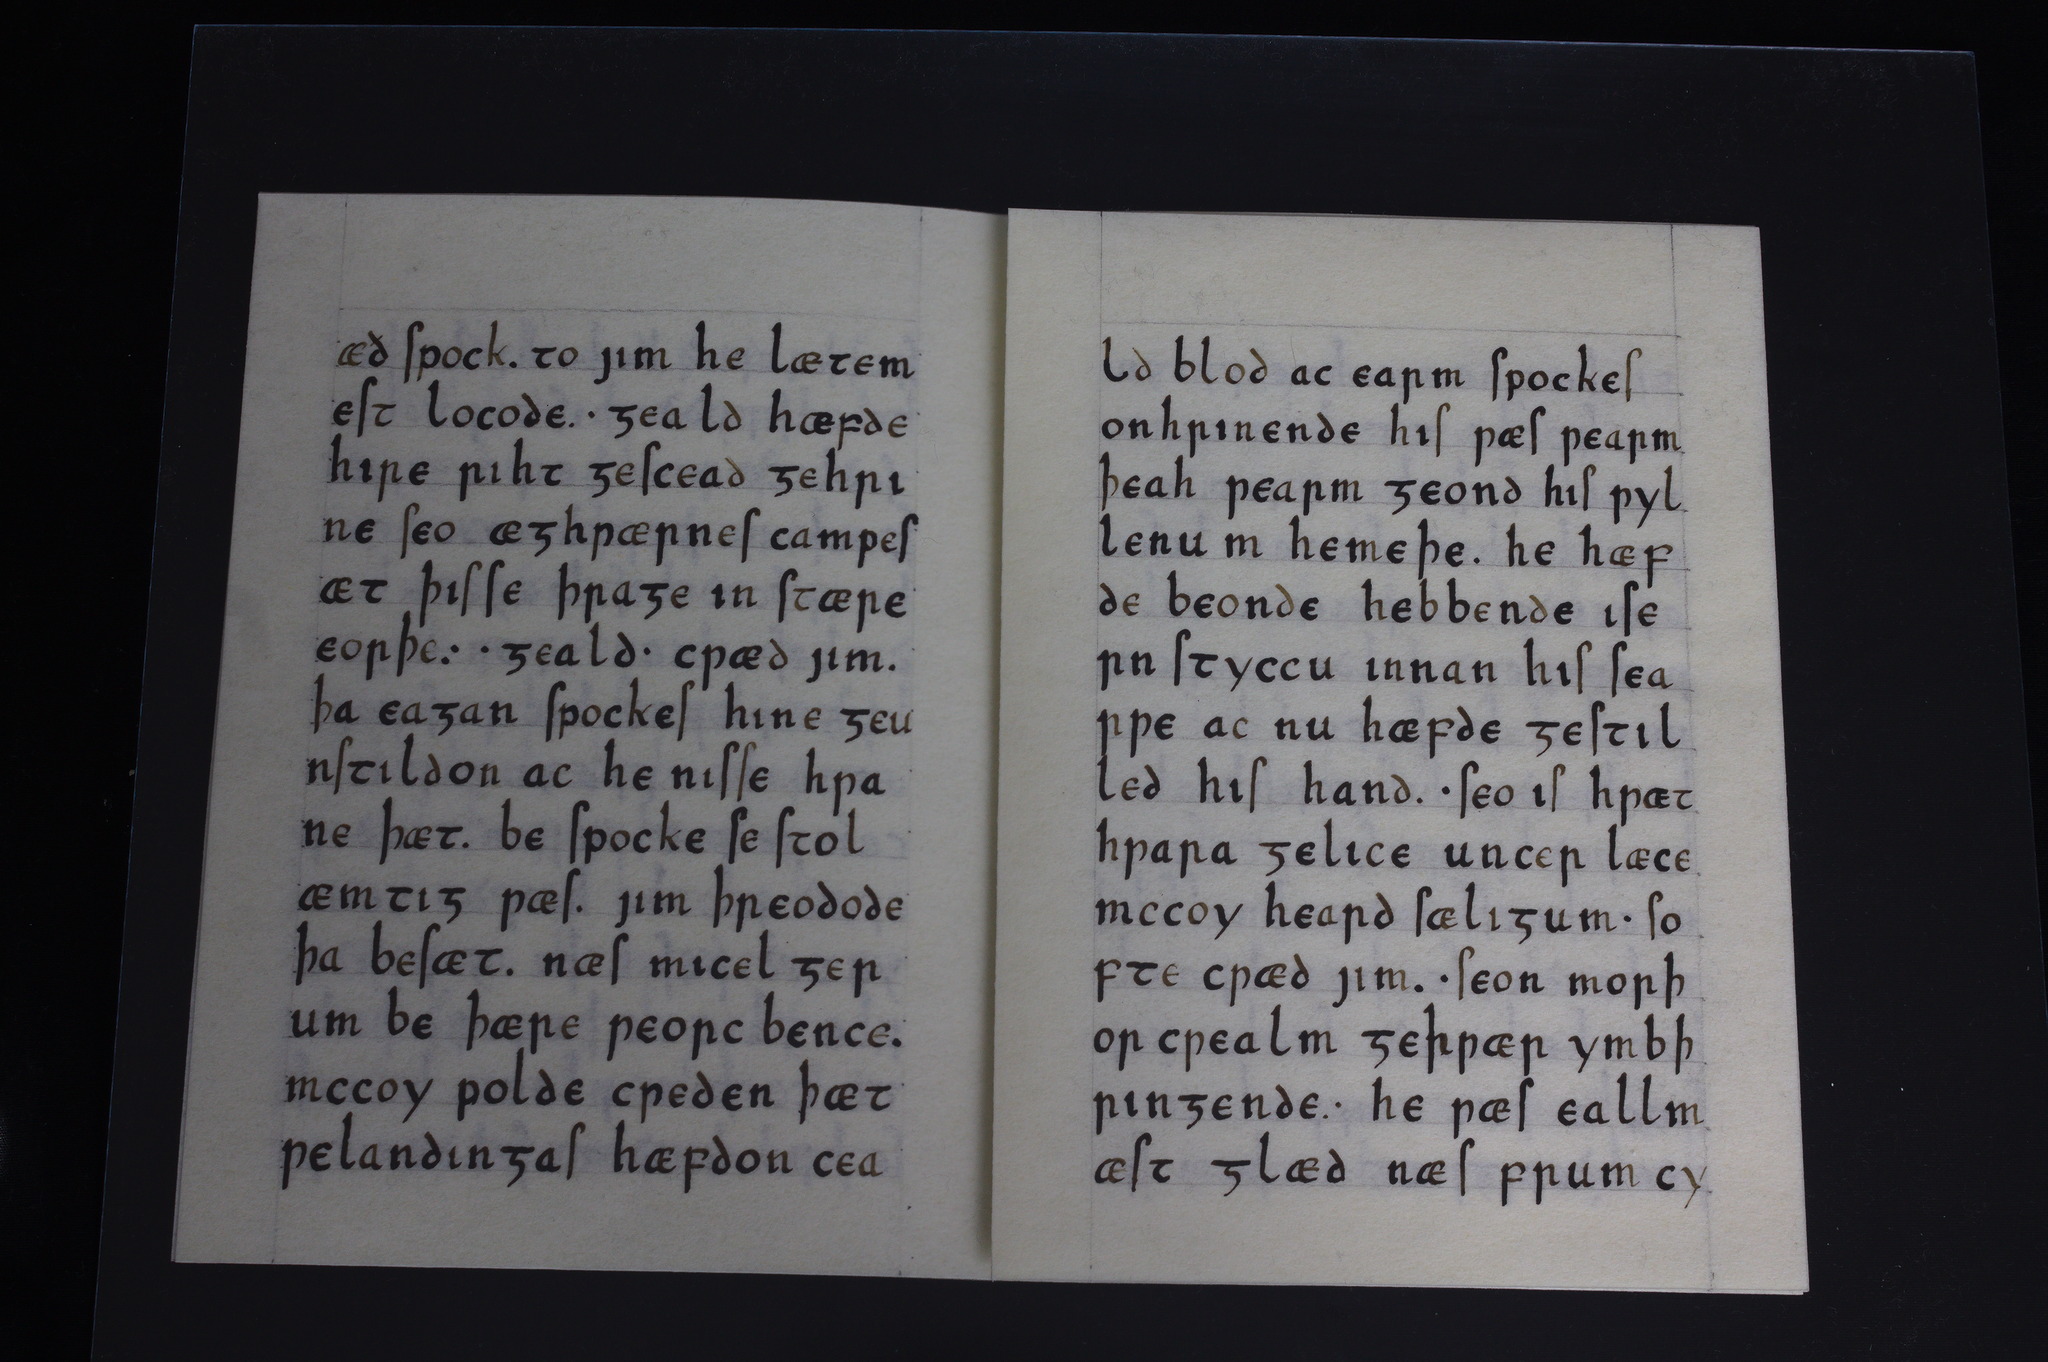 æd ſpock. to jim he lætem
eſt locode. · ᵹeald hæfde
hire riht ᵹeſcead ᵹehri
ne ſeo æᵹhƿærneſ campeſ
æt þiſſe þraᵹe in ſtære
eorþe:· ·ᵹeald· cƿæd jim.
þa eaᵹan ſpockeſ hine ᵹeu
nſtildon ac he niſſe hƿa
ne þæt. be ſpocke ſe ſtol
æmtiᵹ ƿæſ. jim þreodode
þa beſæt. næſ micel ᵹer
um be þære ƿeorc bence.
mccoy ƿolde cƿeden þæt
ƿelandinᵹaſ hæfdon cea
ld blod ac earm ſpockeſ
onhrinende hiſ ƿæſ ƿearm
þeah ƿearm ᵹeond hiſ ƿyl
lenum hemeþe. he hæf
de beonde hebbende iſe
rn ſtyccu innan hiſ ſea
rƿe ac nu hæfde ᵹeſtil
led hiſ hand. ·ſeo iſ hƿæt
hƿara ᵹelice uncer læce
mccoy heard ſæliᵹum· ſo
fte cƿæd jim. ·ſeon morþ
or cƿealm ᵹehƿær ymbþ
rinᵹende.· he ƿæſ eallm
æſt ᵹlæd næſ frum cy